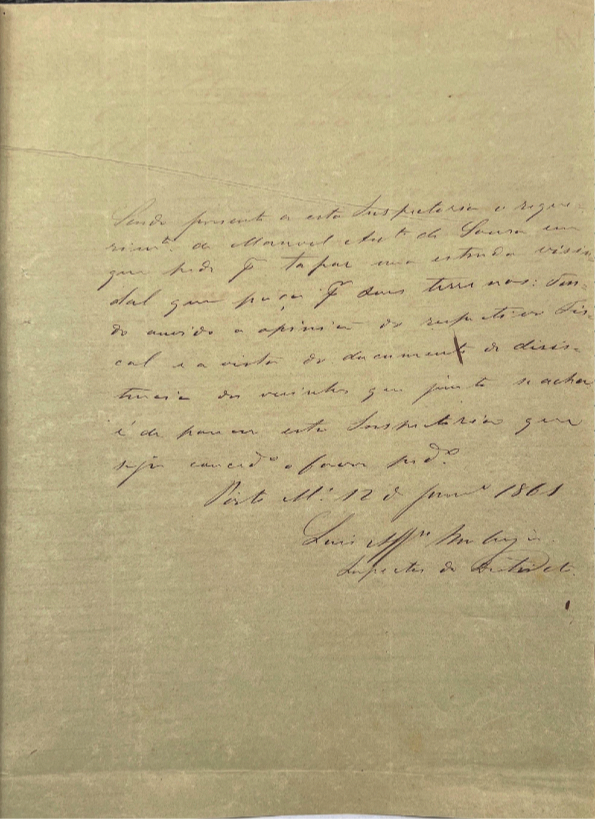 Sendo presente a esta Inspetoria o reque-
rim.to de Manoel An.to de Souza em
que pede p.a tapar uma estrada visin-
dal que passa p.r seus terrenos: Ten-
do ouvido a opinião do respetivo Fis-
cal e a vista do documento de desis-
tencia dos vesinhos que junto se acha
é de parecer esta Inspetoria que
seja conced.o o favor ped.o
Porto M.s 12 de Janr.o 1861
Luis Aff.o
Inspector do Districto